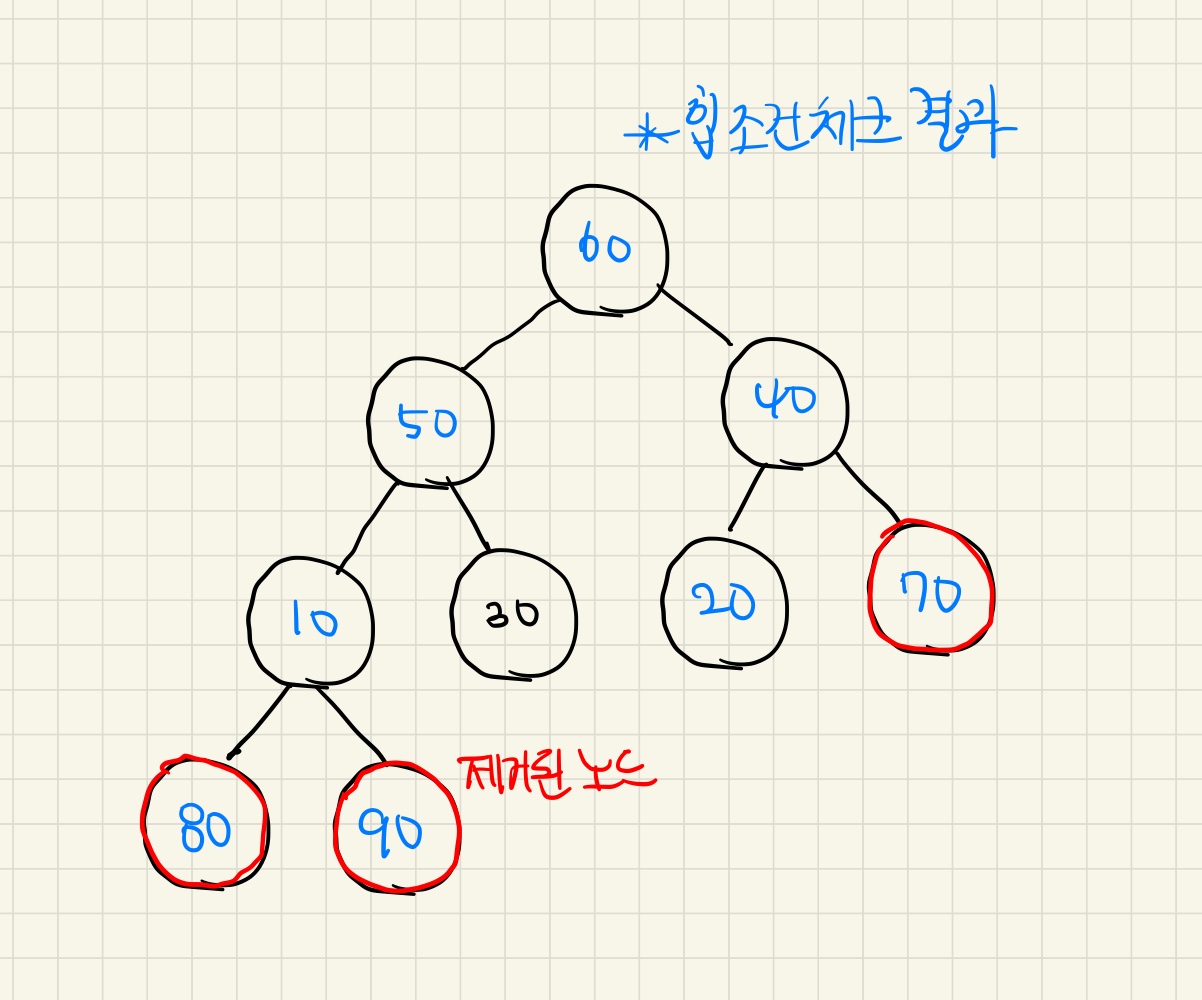 * 힙 조건 체크 결과
60
50
40
10
30
20
70
80
90
제거된 노드